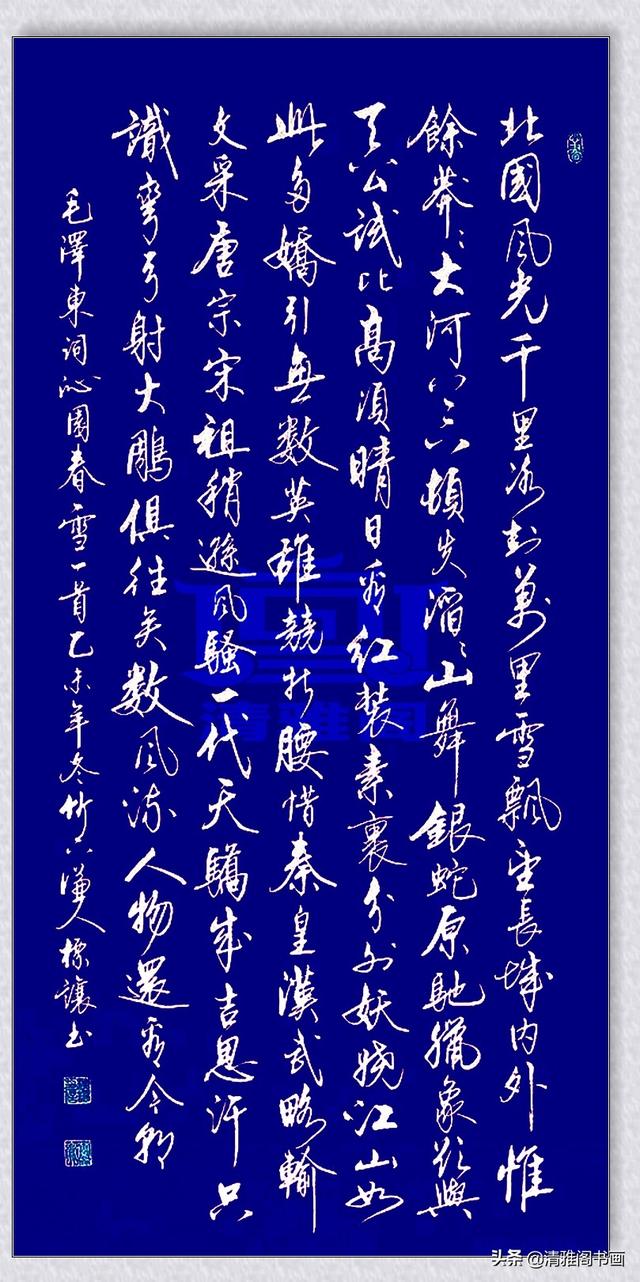 北國风光千里冰封萬里雪飄望長城内外惟
餘莽々大河上下頓失滔々山舞銀蛇原馳臘象欲與
天公試比高須晴日看紅裝素裹分外妖嬈江山如
此多嬌引無数英雄競折腰惜秦皇漢武略輸
文采唐宗宋祖稍遜风騷一代天驕成吉思汗只
識彎弓射大鵰俱往矣数风流人物還看今朝
毛澤東詞沁園春雪一首乙未年冬竹下谦人標讓书
清雅阁
头条 @清雅阁书画